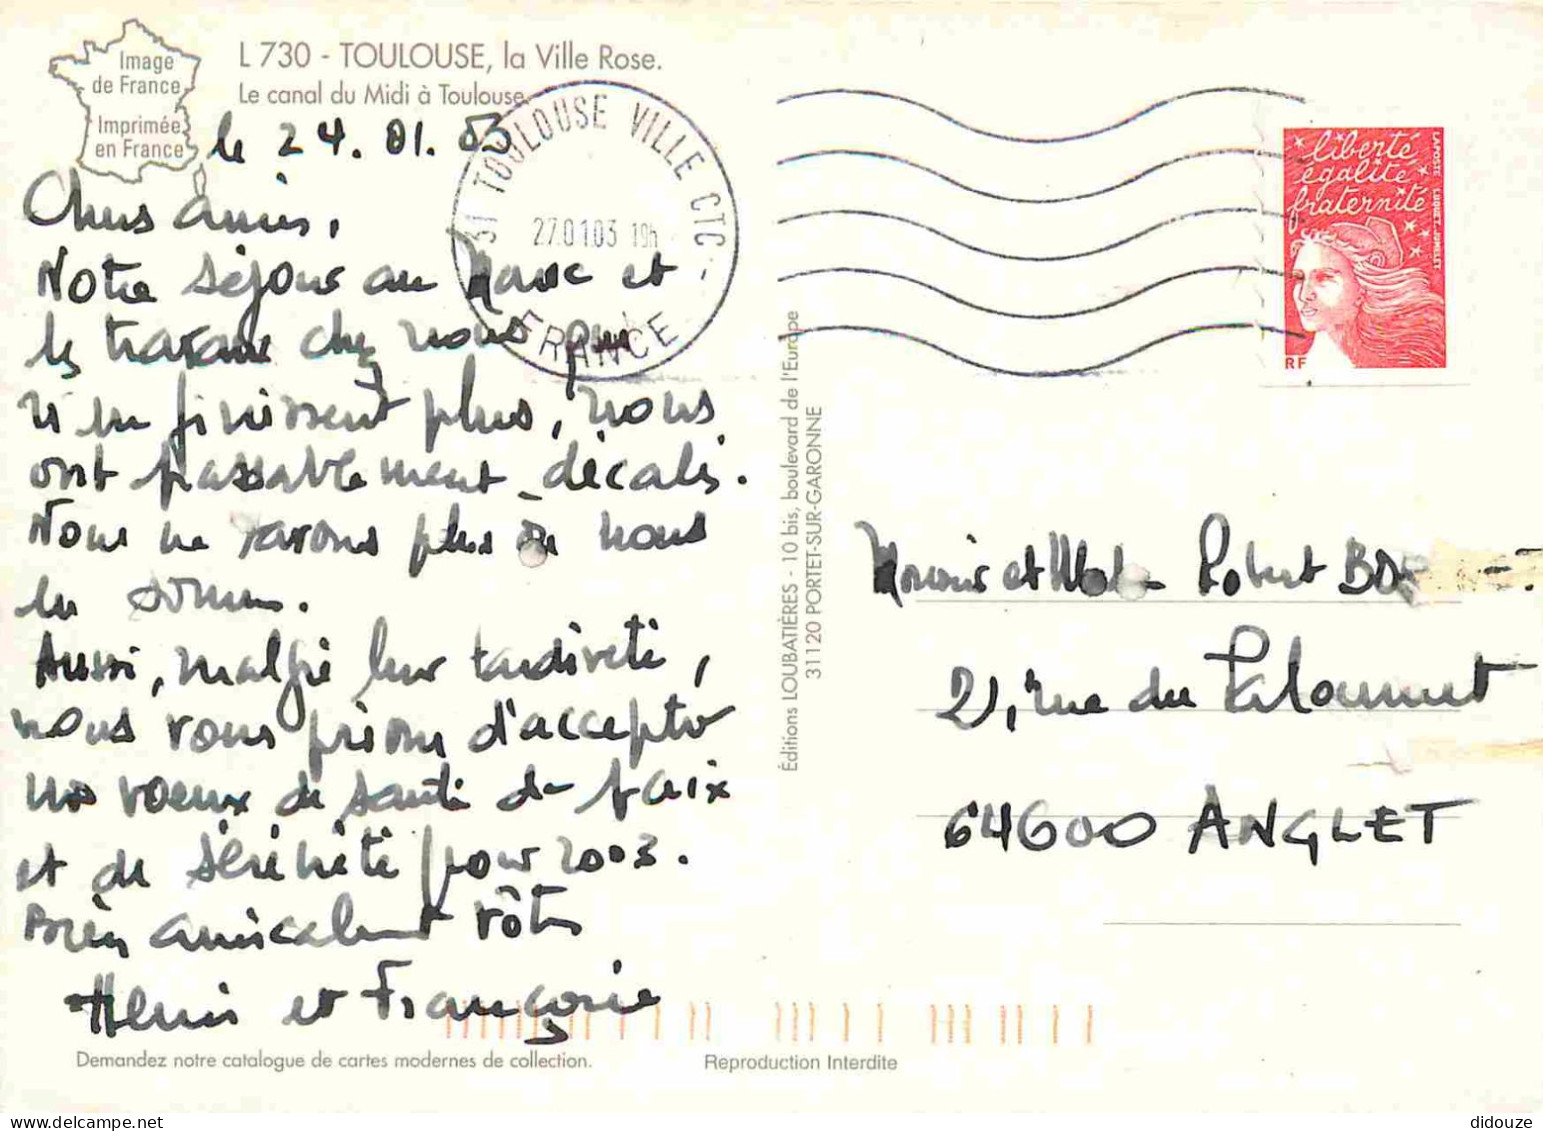 Image
de France
Imprimée
en France
L 730 - TOULOUSE, la Ville Rose.
Le canal du Midi à Toulouse.
le 24.01.03
Chers amis,
Notre séjour au Maroc et
les travaux chez nous, qui
n'en finissent plus, nous
ont passablement décalés.
Nous ne savons plus où nous
en sommes.
Aussi, malgré leur tardiveté,
nous vous prions d'accepter
nos voeux de santé de paix
et de sérénité pour 2003.
Bien amicalement vôtres
Henri et Françoise
Demandez notre catalogue de cartes modernes de collection.
Reproduction Interdite
31 TOULOUSE VILLE CTC
27.01.03 19h
FRANCE
Éditions LOUBATIÈRES - 10 bis, boulevard de l'Europe
31120 PORTET-SUR-GARONNE
liberté
égalité
fraternité
LA POSTE LUQUET. JUMELET
RF
Monsieur et Robert
21, rue du
64600 ANGLET
didouze